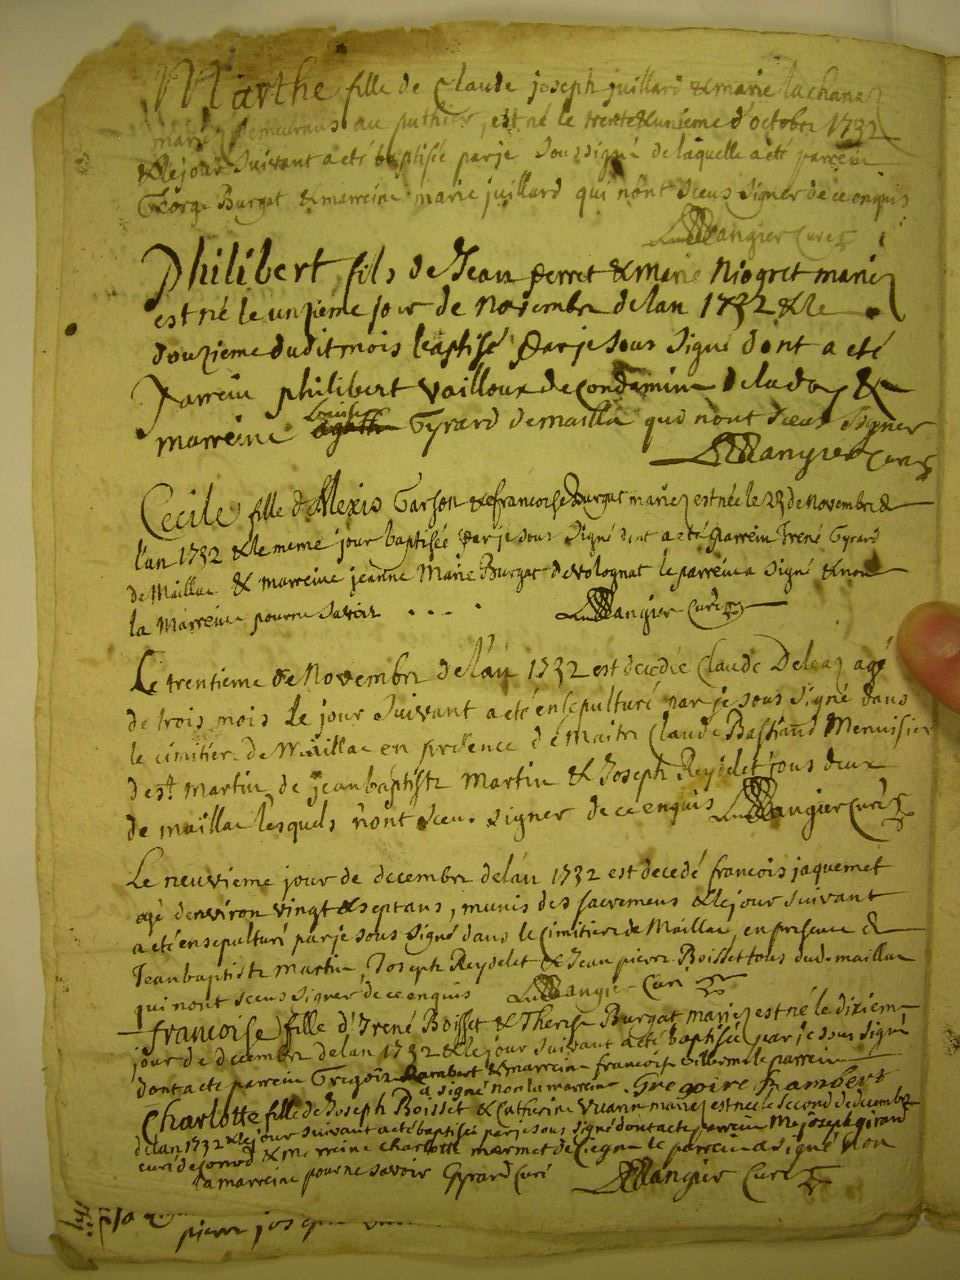 Marthe fille de Claude joseph juillard & marie lachana
mariez demeurans au , est né le trente & unieme d'octobre 1732
& le jour suivant a eté baptisée par je soussigné de laquelle a eté parrein
George Burgat & marreine marie juillard qui n'ont sceus signer de ce enquis
Mangier Curé
Philibert fils de Jean perret & Marie Niogret mariez
est né le unzieme jour de novembre de lan 1732 & le
douzieme dudit mois baptisé par je sous signé dont a eté
Parrein philibert vailloux de Condamine de la doy &
marreine Louise Gyrard de mailla qui nont sceus signer
Mangier Curé
Cecile fille d'Alexis Garson & francoise Burgat mariez est née le 23 de Novembre de
l'an 1732 & le meme jour baptisée par je sous signé dont a eté parrein Irené Gyrard
de Maillac & marreine jeanne Marie Burgat de volognat le parrein a signé & non
la Marreine pour ne savoir . . . . Mangier Curé
Le trentieme de Novembre de l'an 1732 est decedé Claude Deleaz agé
de trois mois Le jour suivant a eté ensepulturé par je sous signé dans
le cimitiere de Maillac en presence de maitre Claude Bastiand Menuisier
de st. Martin, de jean baptiste Martin & Joseph Reydelet tous deux
de maillac lesquels n'ont sceu signer de ce enquis Mangier Curé
Le neuvieme jour de decembre de lan 1732 est decedé francois jaquemet
agé denviron vingt & sept ans, munis des sacremens & le jour suivant
a eté ensepulturé par je sous signé dans le Cimitiere de Maillac, en presence de
Jean baptiste martin, Joseph Reydelet & Jean pierre Boisset tous du d. maillac
qui nont sceus signer de ce enquis Mangier Curé
francoise fille d'Irené Boisset & Therese Burgat mariez est né le dixieme
jour de decembre de lan 1732 & le jour suivant a eté baptisée par je sous signé
dont a eté parrein Gregoire Rambert & marreine francoise le parrein
a signé non la marreine. Gregoire Rambert
Charlotte fille de Joseph Boisset & Catherine mariez est née le second de decembre
de lan 1732 & le jour suivant a eté baptisée par je sous signé dont a eté parrein Me joseph girard
curé de & marreine charlotte marmet de le parrein a signé non
la marreine pour ne savoir Gyrard Curé Mangier Curé
pierre